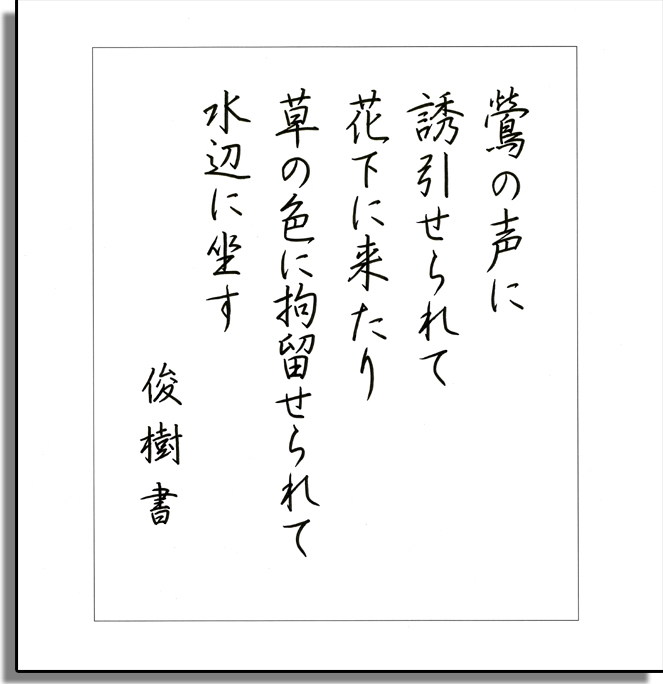 鶯の声に
誘引せられて
花下に来たり
草の色に拘留せられて
水辺に坐す
俊樹書